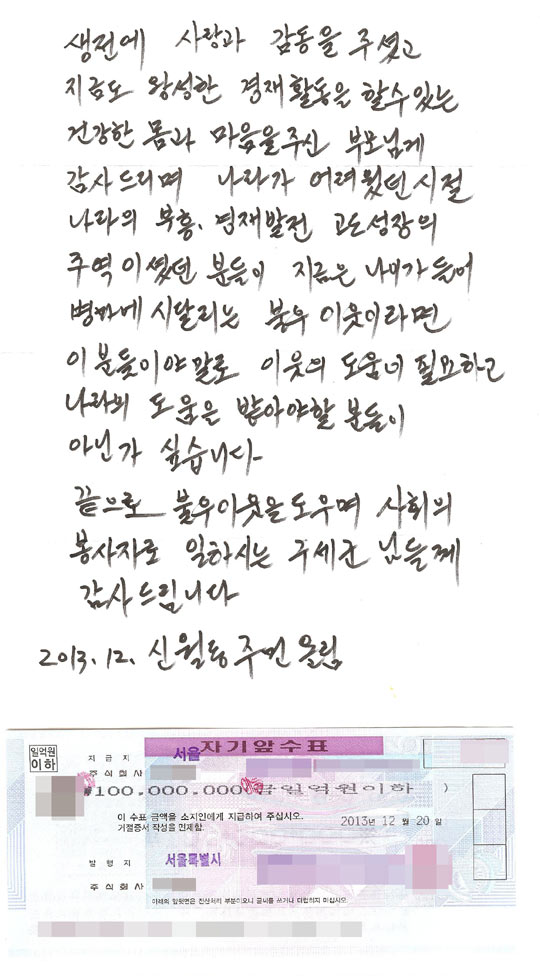 생전에 사랑과 감동을 주셨고
지금도 왕성한 경재활동을 할수있는
건강한 몸과 마음을 주신 부모님게
감사드리며 나라가 어려웠던 시절
나라의 부흥, 경재발전 고도성장의
주역이셨던 분들이 지금은 나이가 들어
병마에 시달리는 불우이웃이라면
이분들이야 말로 이웃의 도움너 필요하고
나라의 도움은 받아야할 분들이
아닌가 싶습니다
끝으로 불우이웃을 도우며 사회의
봉사자로 일하시는 구세군 님들께
감사드립니다
2013. 12. 신월동 주민 올림
일억원 이하
자기앞수표
지급지 서울
주식회사
₩100,000,000 금일억원이하 )
이 수표 금액을 소지인에게 지급하여 주십시오.
거절증서 작성을 면제함.
2013년 12 월 20 일
발행지 서울특별시
주식회사
아래의 앞뒷면은 전산처리 부분이오니 글씨를 쓰거나 더럽히지 마십시오.